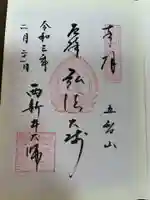 奉拝
五智山
厄除
弘法大師
西新井大師
令和三年
二月